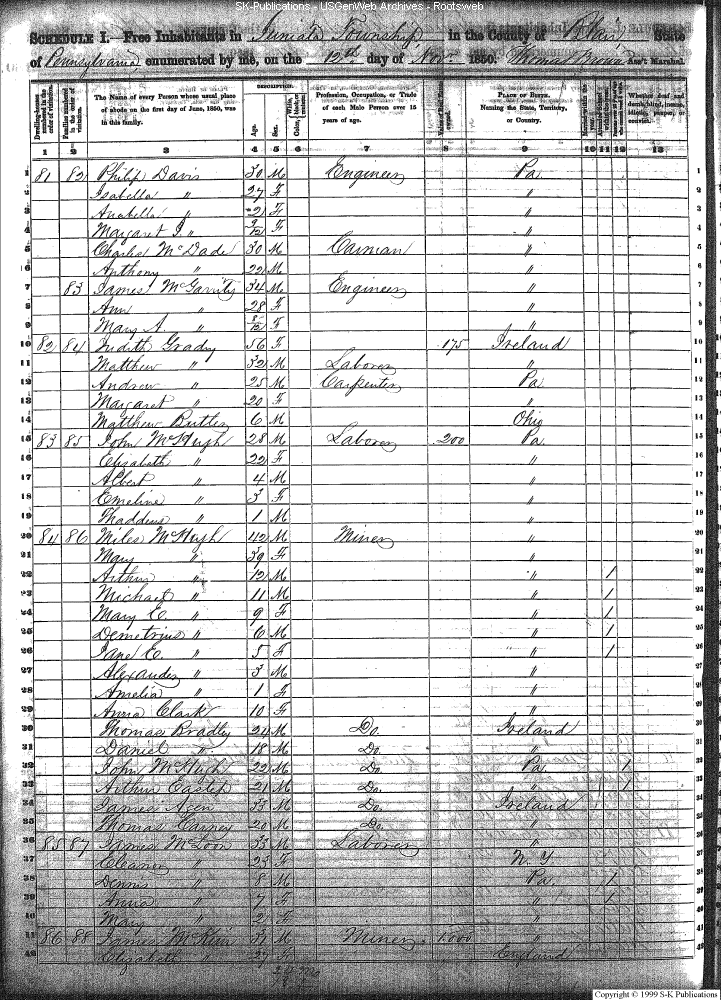 SK-Publications - USGenWeb Archives - Rootsweb
SCHEDULE I. Free Inhabitants in Juniata Township in the County of Blair State
of Pennsylvania enumerated by me, on the 12th day of Novr. 1850. Thomas Ass't Marshal.
Dwelling-houses numbered in the order of visitation.
Families numbered in the order of visitation.
The Name of every Person whose usual place of abode on the first day of June, 1850, was in this family.
DESCRIPTION.
Age.
Sex.
Color
Profession, Occupation, or Trade of each Male Person over 15 years of age.
Value of Real Estate owned.
PLACE OF BIRTH.
Naming the State, Territory, or Country.
Whether deaf and dumb, blind, insane, idiotic, pauper, or convict.
1 2 3 4 5 6 7 8 9 10 11 12 13
1 81 82 Philip Davis 30 M Engineer Pa 1
2 Isabella " 27 F " 2
3 Anabella " 2 F " 3
4 Margaret J. " 9/12 F " 4
5 Charles McDade 30 M Carman " 5
6 Anthony " 22 M " 6
7 83 James McGarrity 34 M Engineer " 7
8 Ann " 28 F " 8
9 Mary A. " 8/12 F " 9
10 82 84 Judith Grady 56 F 175 Ireland 10
11 Matthew " 32 M Laborer " 11
12 Andrew " 25 M Carpenter Pa 12
13 Margaret " 20 F " 13
14 Matthew Butler 6 M Ohio 14
15 83 85 John McHugh 28 M Laborer 200 Pa 15
16 Elizabeth " 22 F " 16
17 Albert " 4 M " 17
18 Emeline " 3 F " 18
19 Thaddeus " 1 M " 19
20 84 86 Miles McHugh 42 M Miner " 20
21 Mary " 39 F " 21
22 Arthur " 12 M " 1 22
23 Michael " 11 M " 1 23
24 Mary E. " 9 F " 1 24
25 Demetrius " 6 M " 1 25
26 Jane E. " 5 F " 1 26
27 Alexander " 3 M " 27
28 Amelia " 1 F " 28
29 Anna Clark 10 F " 29
30 Thomas Bradley 24 M Do. Ireland 30
31 Daniel " 18 M Do. " 31
32 John McHugh 22 M Do. Pa 1 32
33 Arthur 21 M Do. " 1 33
34 James 33 M Do. Ireland 34
35 Thomas Carney 20 M Do. " 35
36 85 87 James McLoon 33 M Laborer " 36
37 Eleanor " 23 F N. Y 37
38 Dennis " 8 M Pa. 1 38
39 Anna " 7 F " 1 39
40 Mary " 2 F " 40
41 86 88 James McKim 37 M Miner 1000 " 41
42 Elizabeth " 37 F England 42
Copyright © 1999 S-K Publications